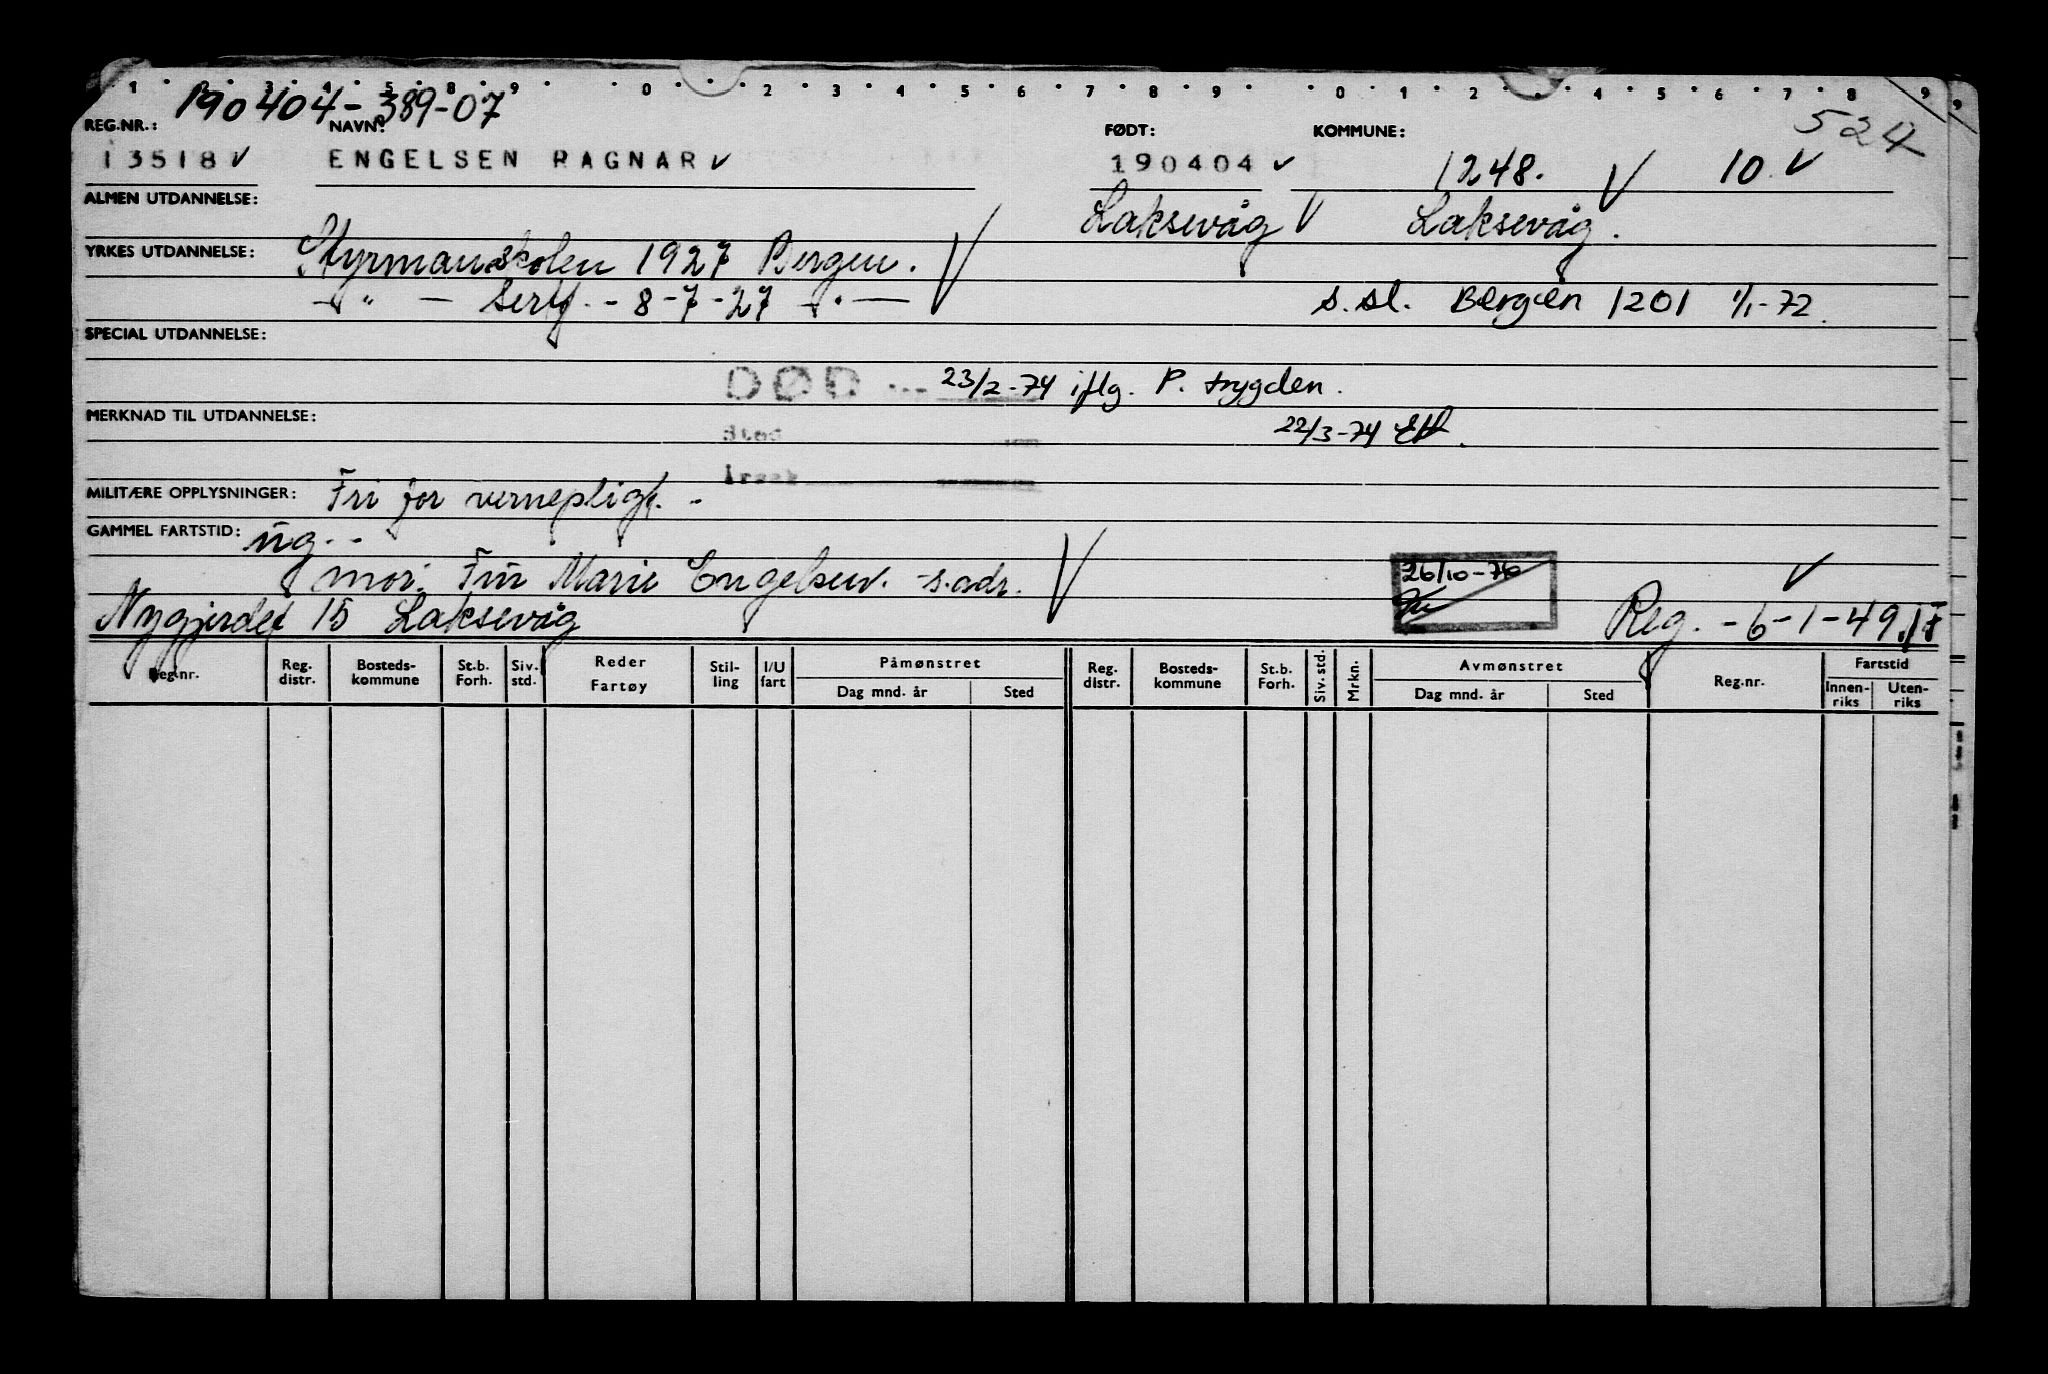 1 2 3 4 5 8 9 0 2 3 4 5 6 7 8 9 0 1 2 4 5 6 7 8 9 9
190404-389-07 524
REG.NR.: NAVN: FØDT: KOMMUNE:
13518 ✓ ENGELSEN RAGNAR ✓ 190404 ✓ 1248. ✓ 10 ✓
ALMEN UTDANNELSE: Laksevåg ✓ Laksevåg.
YRKES UTDANNELSE: Styrmanskolen 1927 Bergen. ✓
— " — Sertf. - 8-7-27 — " — s.sl. Bergen 1201 1/1-72.
SPECIAL UTDANNELSE:
DØD 23/2-74 iflg. P. trygden.
MERKNAD TIL UTDANNELSE: Sted 22/3-74 EH.
Årsak
MILITÆRE OPPLYSNINGER: Fri for vernepligt. -
GAMMEL FARTSTID:
ug. -
mor: Fru Marie Engelsen. s.adr. ✓ 26/10-76 ✓
Nygjerdet 15 Laksevåg Reg. - 6-1-49.
Reg.nr. Reg. distr. Bosteds-kommune St.b. Forh. Siv. std. Reder Fartøy Stil-ling I/U fart Påmønstret Dag mnd. år Sted Reg. distr. Bosteds-kommune St.b. Forh. Siv. std. Mrkn. Avmønstret Dag mnd. år Sted Reg.nr. Fartstid Innen-riks Uten-riks